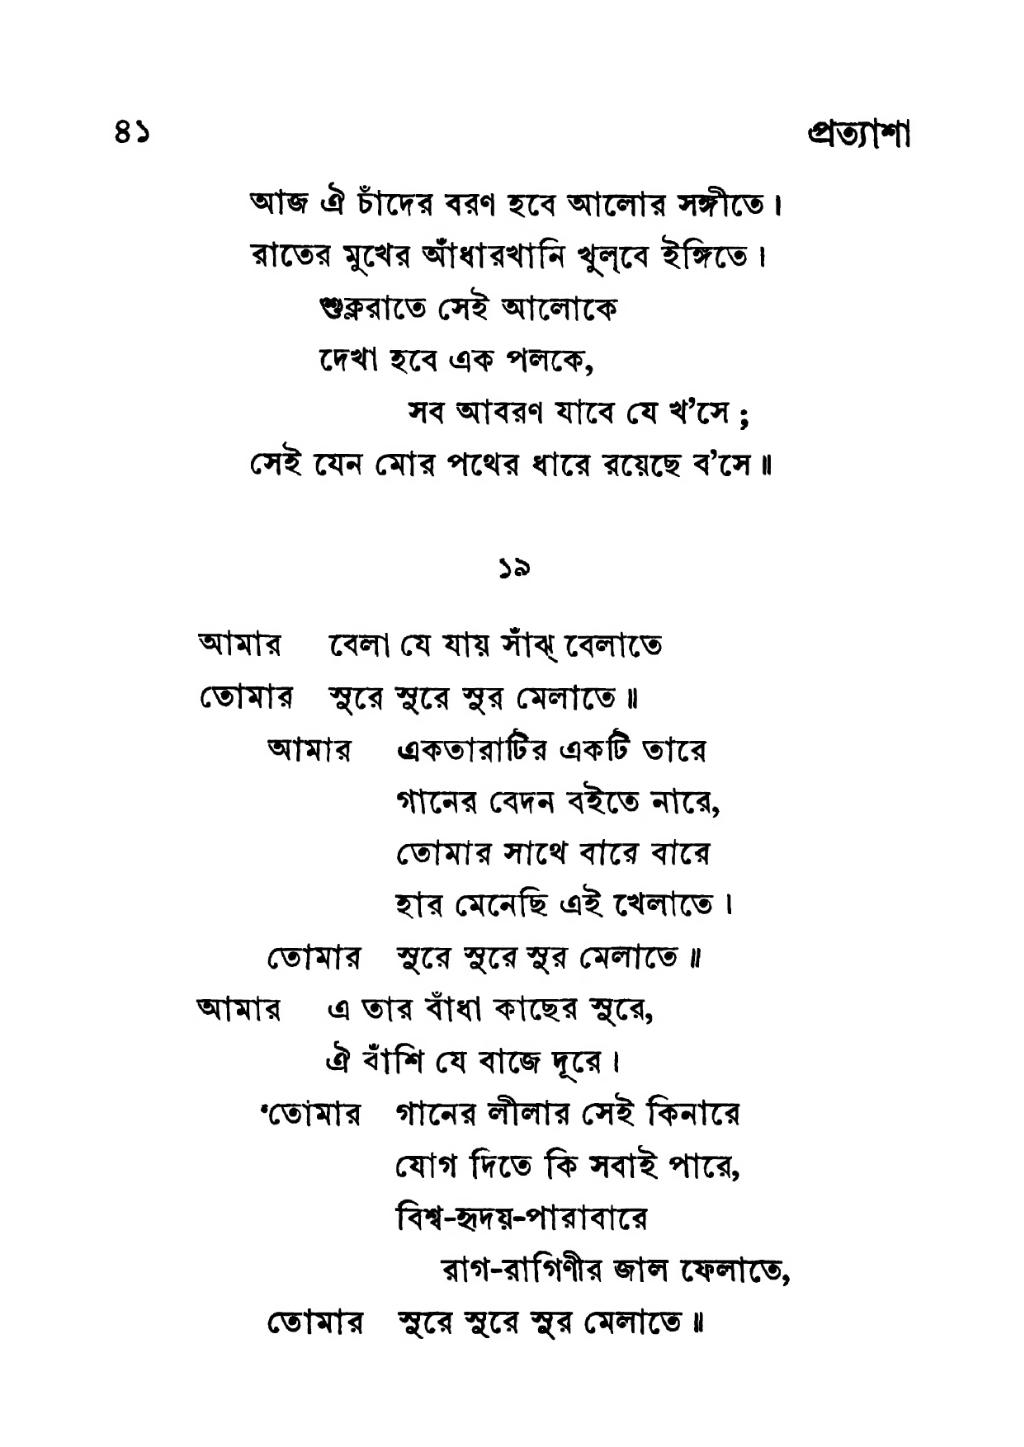 ৪১ প্রত্যাশা
আজ ঐ চাঁদের বরণ হবে আলোর সঙ্গীতে।
রাতের মুখের আঁধারখানি খুল্‌বে ইঙ্গিতে।
শুক্লরাতে সেই আলোকে
দেখা হবে এক পলকে,
সব আবরণ যাবে যে খ’সে;
সেই যেন মোর পথের ধারে রয়েছে ব’সে॥
১৯
আমার বেলা যে যায় সাঁঝ্ বেলাতে
তোমার সুরে সুরে সুর মেলাতে॥
আমার একতারাটির একটি তারে
গানের বেদন বইতে নারে,
তোমার সাথে বারে বারে
হার মেনেছি এই খেলাতে।
তোমার সুরে সুরে সুর মেলাতে॥
আমার এ তার বাঁধা কাছের সুরে,
ঐ বাঁশি যে বাজে দূরে।
তোমার গানের লীলার সেই কিনারে
যোগ দিতে কি সবাই পারে,
বিশ্ব-হৃদয়-পারাবারে
রাগ-রাগিণীর জাল ফেলাতে,
তোমার সুরে সুরে সুর মেলাতে॥